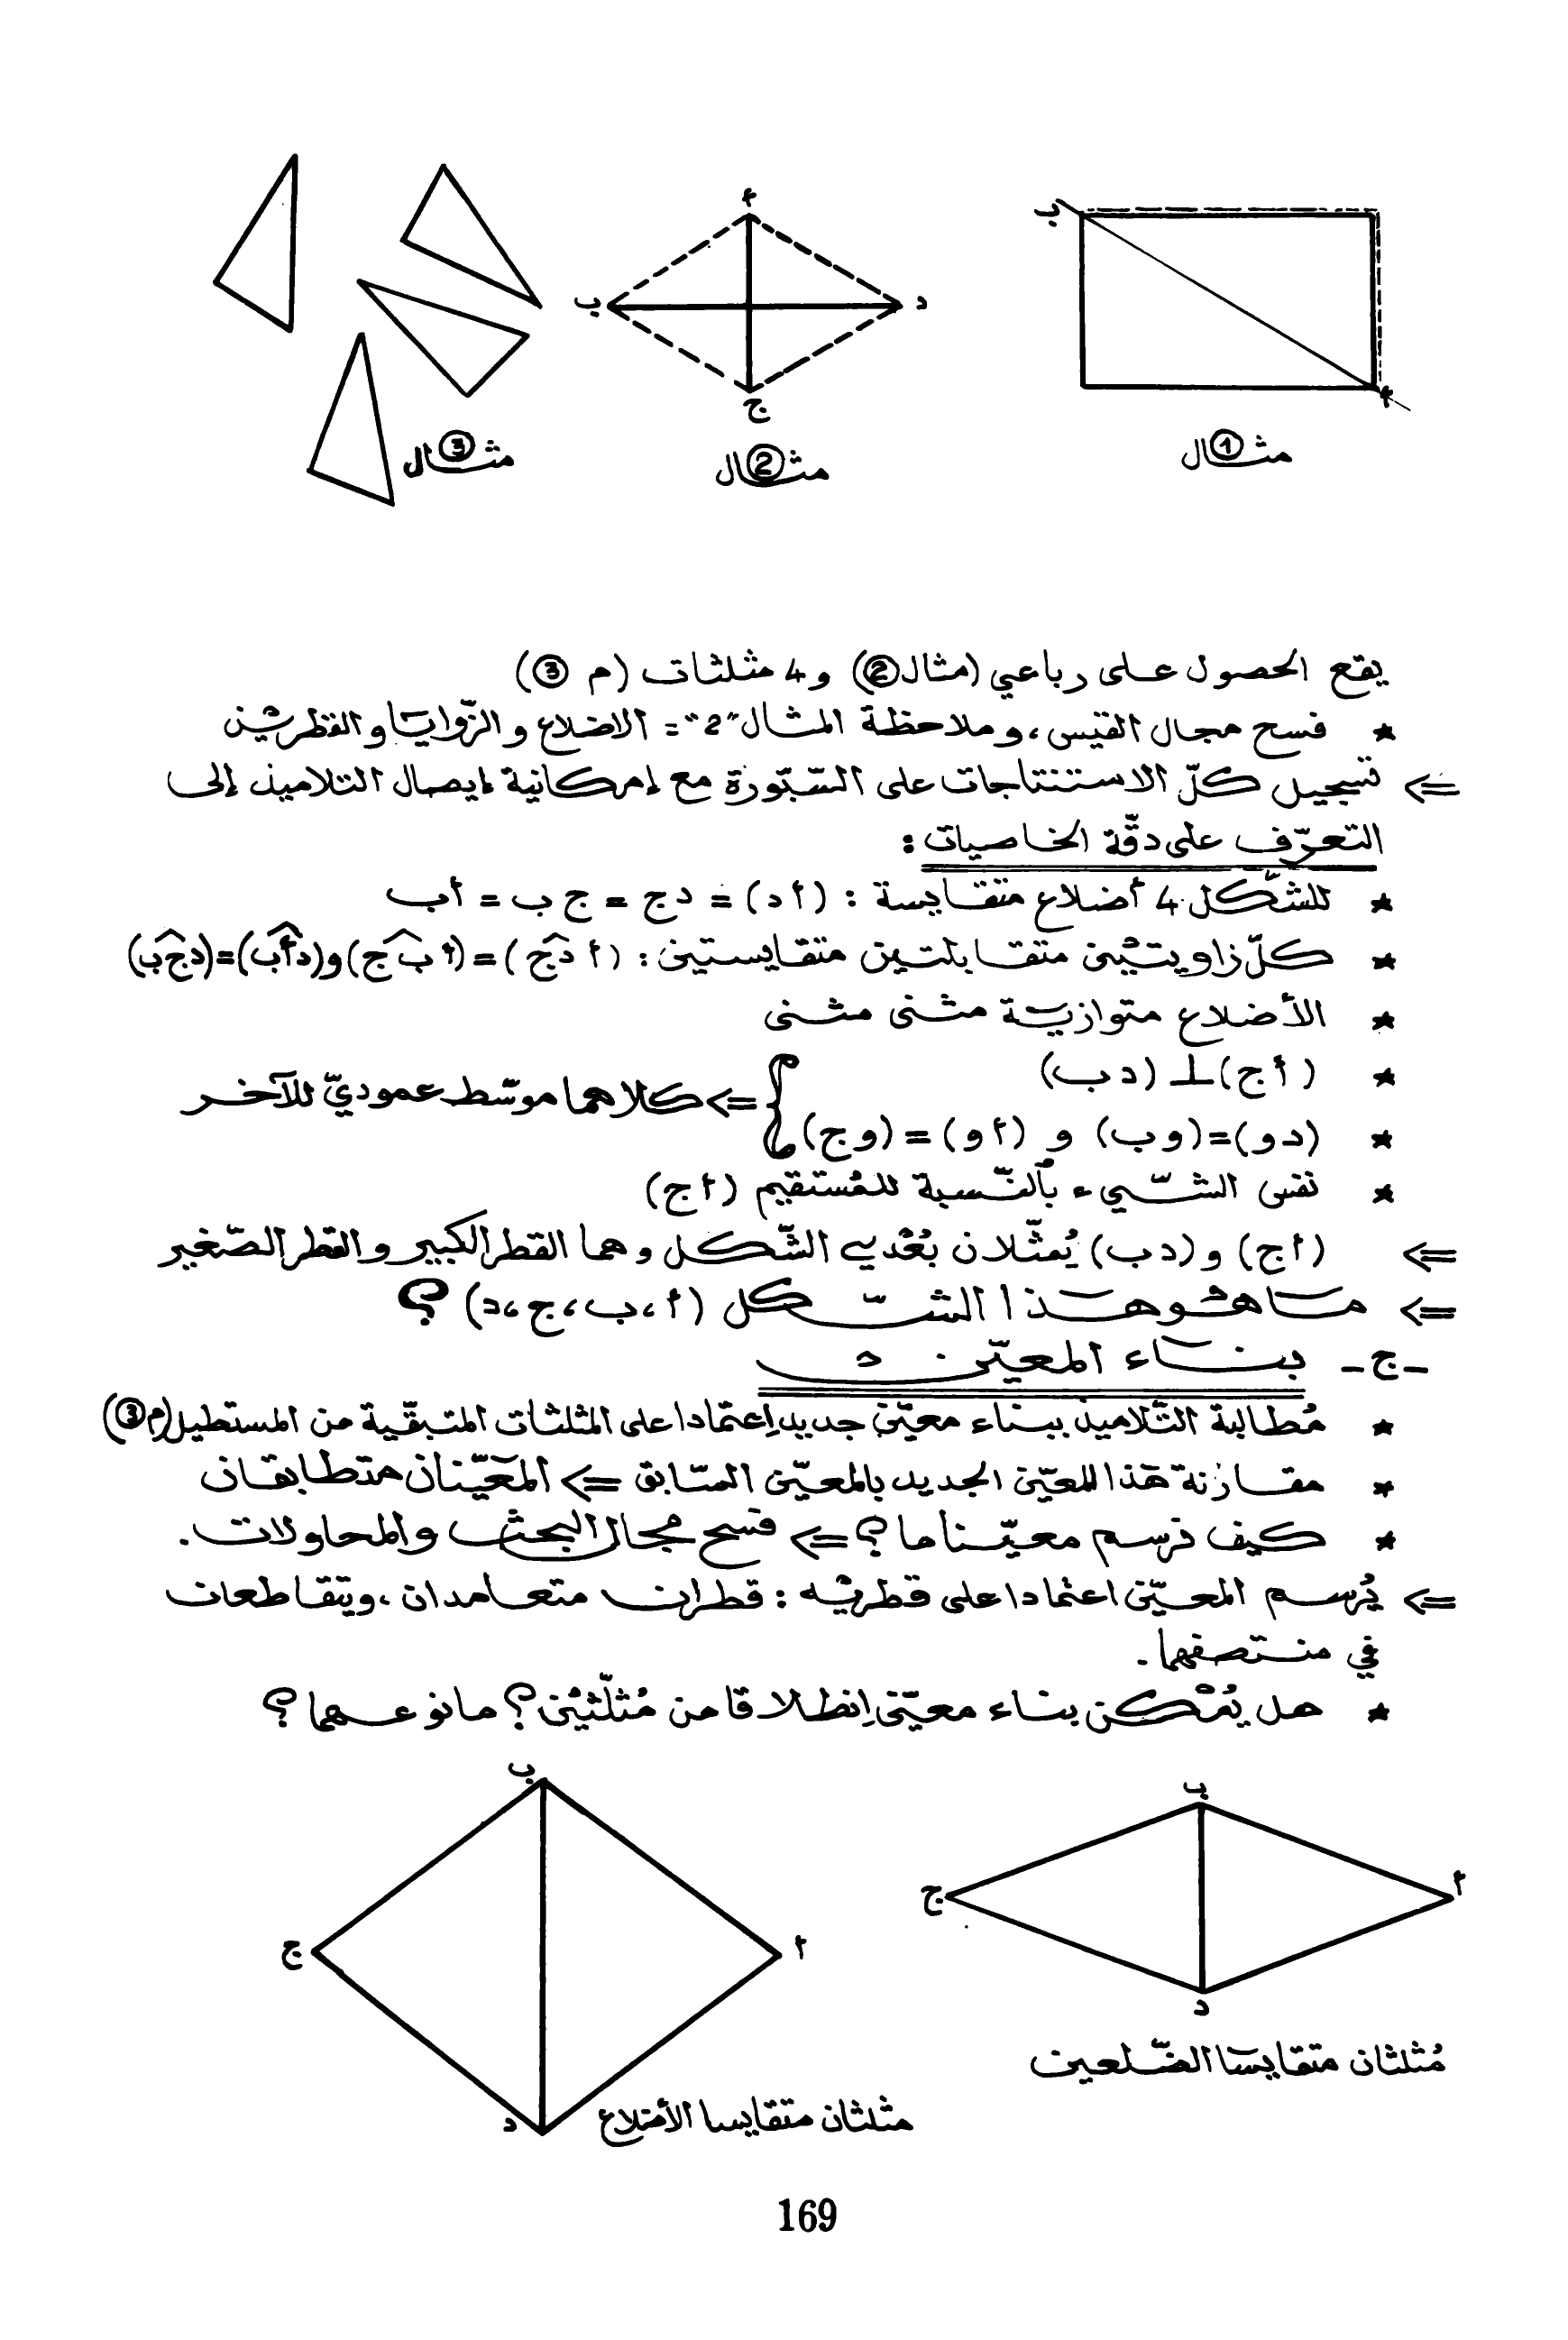 ب
أ
مثال ①
أ
ب
د
ج
مثال ②
مثال ③
يقع الحصول على رباعي (مثال ②) و 4 مثلثات (م ③)
* فسح مجال القيس، وملاحظة المثال "2" = الاضلاع والزّوايا والقطريْن
<= تسجيل كلّ الاستنتاجات على السّبّورة مع إمكانية إيصال التلاميذ إلى
التعرّف على دقّة الخاصيات :
* للشّكل 4 أضلاع متقايسة : (أ د) = دج = ج ب = أب
* كلّ زاويتيْن متقابلتين متقايستين : (أ د̂ ج) = (أ ب̂ ج) و (د أ̂ ب) = (د ج̂ ب)
* الأضلاع متوازية مثنى مثنى
* (أ ج) ⊥ (د ب)
* (د و) = (و ب) و (أ و) = (و ج) } <= كلاهما موسّط عموديّ للآخر
* نفس الشّيء بالنّسبة للمُستقيم (أ ج)
<= (أ ج) و (د ب) يُمثّلان بُعْدي الشّكل وهما القطر الكبير والقطر الصّغير
<= ما هو هذا الشّكل (أ، ب، ج، د) ؟
- ج - بناء المعيّن
* مُطالبة التّلاميذ ببناء معيّن جديد إعتمادا على المثلثات المتبقّية من المستطيل (م ③)
* مقارنة هذا المعيّن الجديد بالمعيّن السّابق <= المعيّنان متطابقان
* كيف نرسم معيّنا ما ؟ <= فسح مجال البحث والمحاولات.
<= يُرسم المعيّن اعتمادا على قطريْه : قطران متعامدان، ويتقاطعان
في منتصفهما.
* هل يُمْكن بناء معيّن إنطلاقا من مُثلّثيْن ؟ ما نوعهما ؟
ب
أ
ج
د
مُثلثان متقايسا الضّلعين
ب
أ
ج
د
مثلثان متقايسا الأضلاع
169